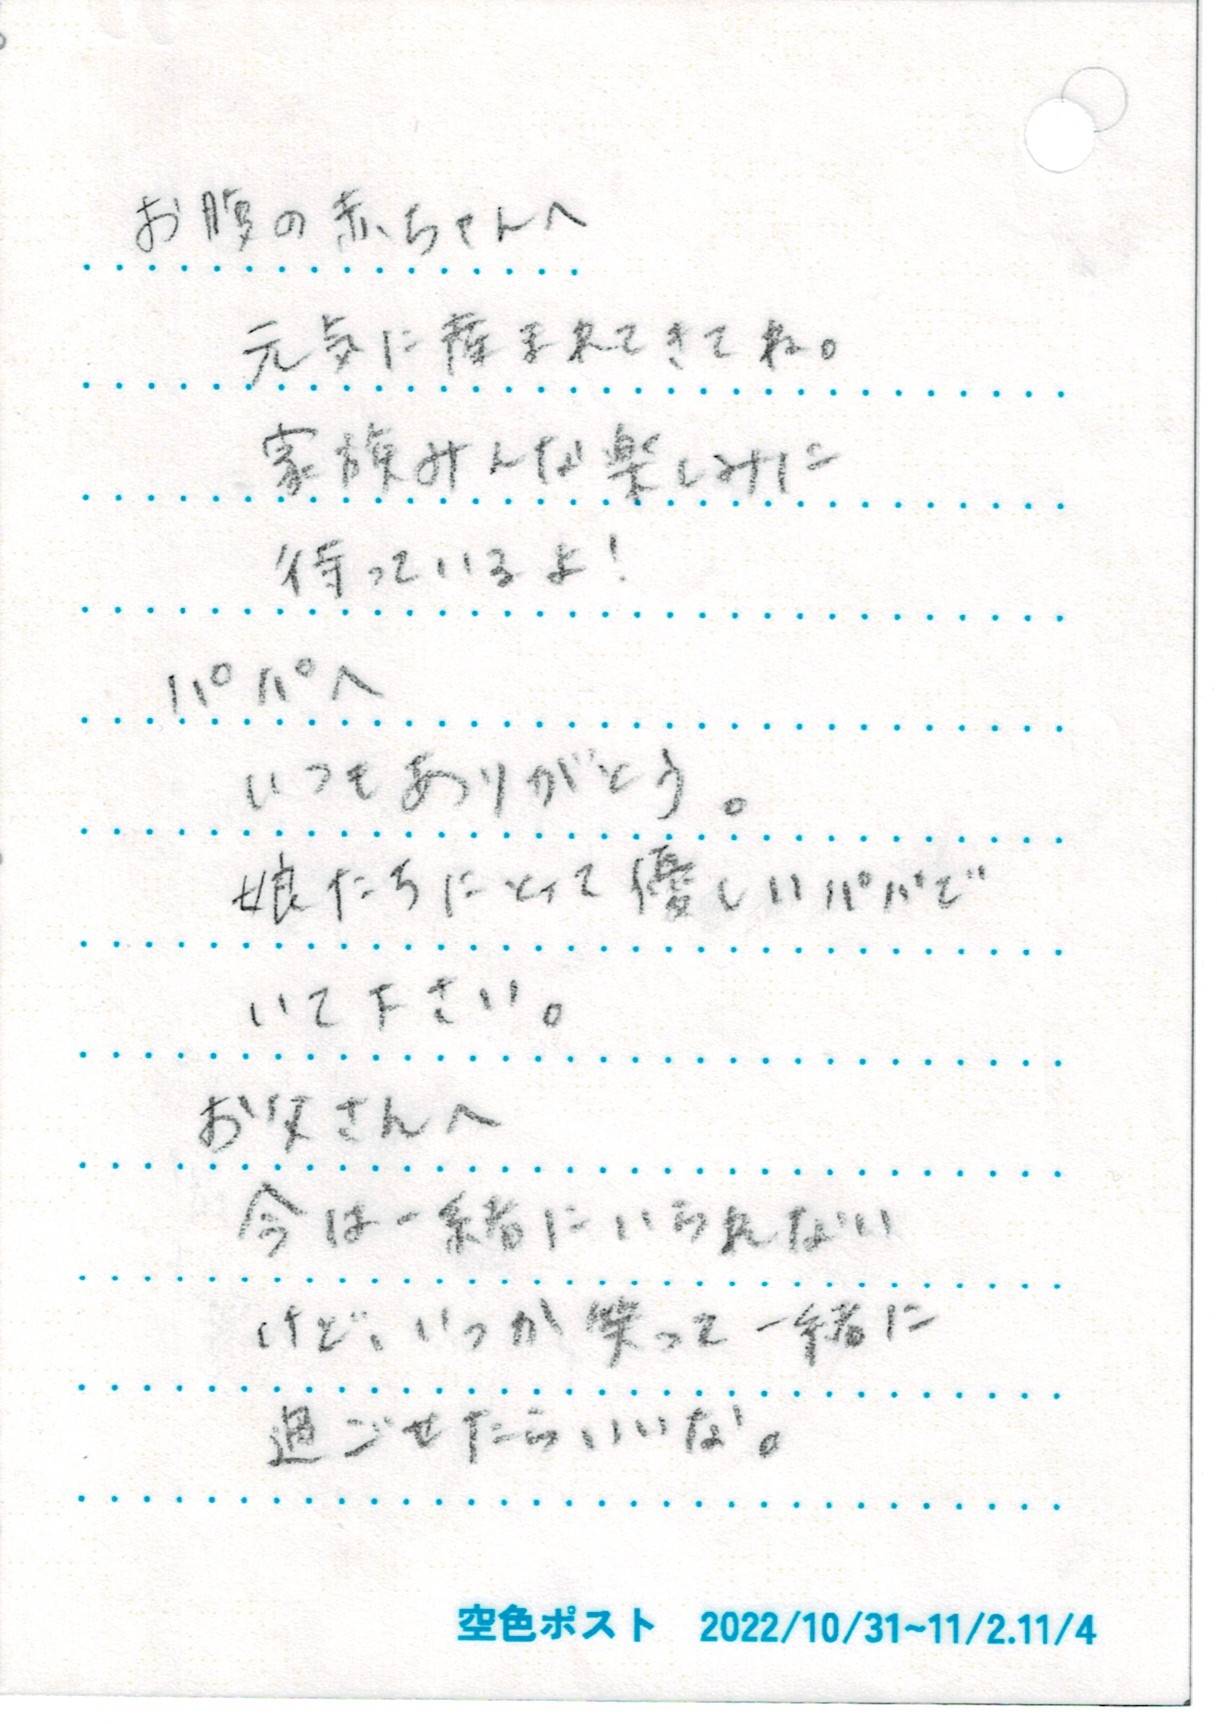 お腹の赤ちゃんへ
元気に産まれてきてね。
家族みんな楽しみに
待っているよ！
パパへ
いつもありがとう。
娘たちにとって優しいパパで
いて下さい。
お父さんへ
今は一緒にいられない
けど、いつか笑って一緒に
過ごせたらいいな。
空色ポスト 2022/10/31~11/2.11/4